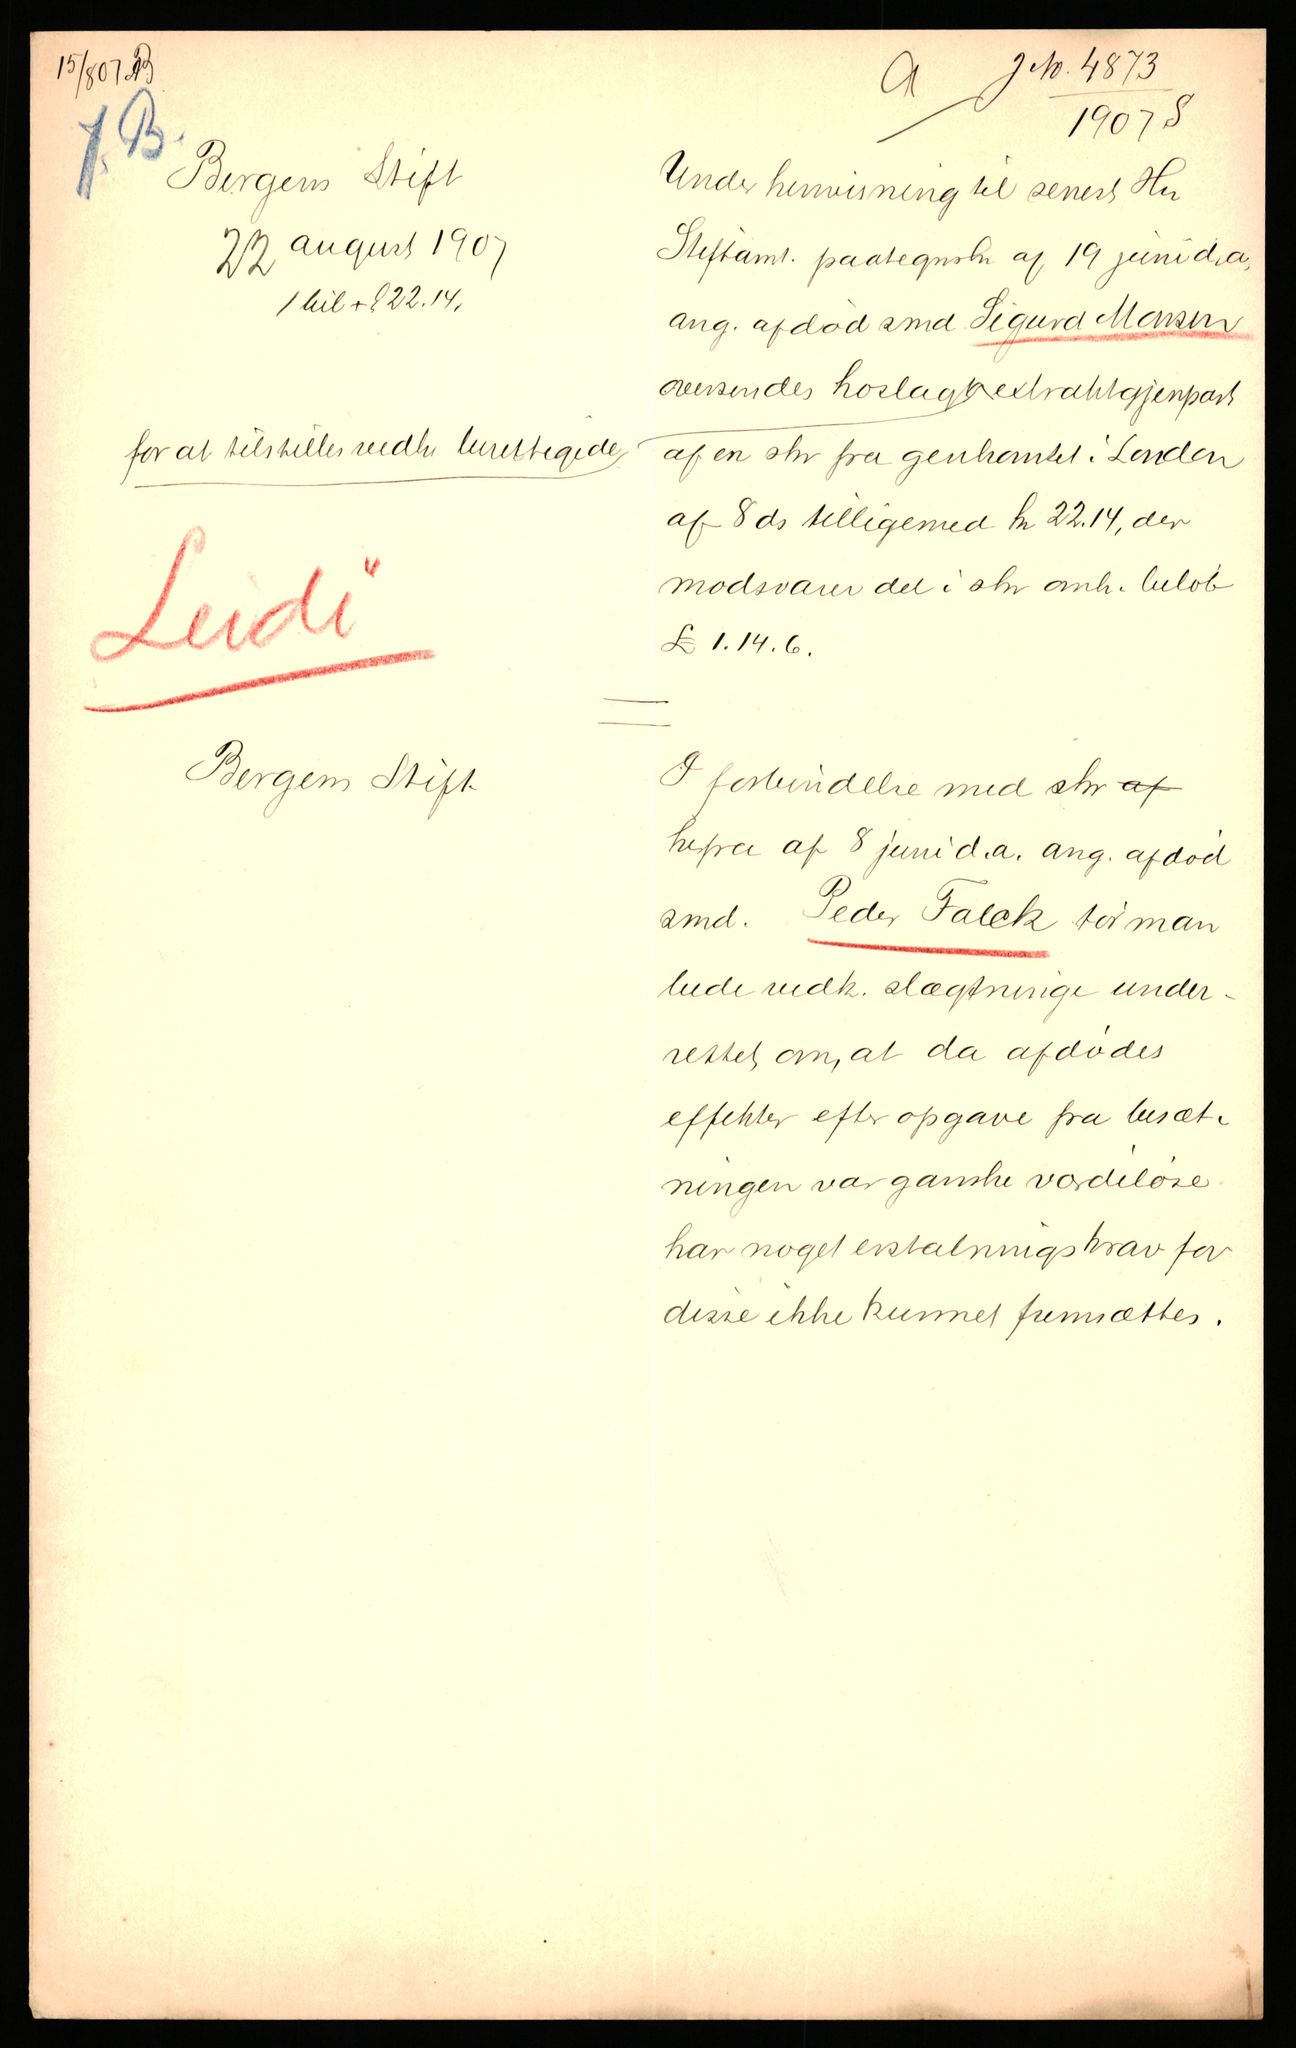 15/8 07 AB
A
J No. 4873
1907 S
J. B.
Bergens Stift
22 august 1907
1 bil + kr 22.14.
for at tilstilles vedk berettigede
"Leidi"
Under henvisning til senest Hr
Stiftamt. paategnskr af 19 juni d.a.
ang. afdød smd Sigurd Monsen
oversendes hoslagt extraktgjenpart
af en skr fra genkonsulat i London
af 8 ds tilligemed kr 22.14, der
modsvarer det i skr omh. beløb
£ 1.14.6.
Bergens Stift
I forbindelse med skr af
hefra af 8 juni d.a. ang. afdød
smd. Peder Falck tør man
bede vedk. slægtninge under-
rettet om, at da afdødes
effekter efter opgave fra besæt-
ningen var ganske værdiløse
har noget erstatningskrav for
disse ikke kunnet fremsættes.